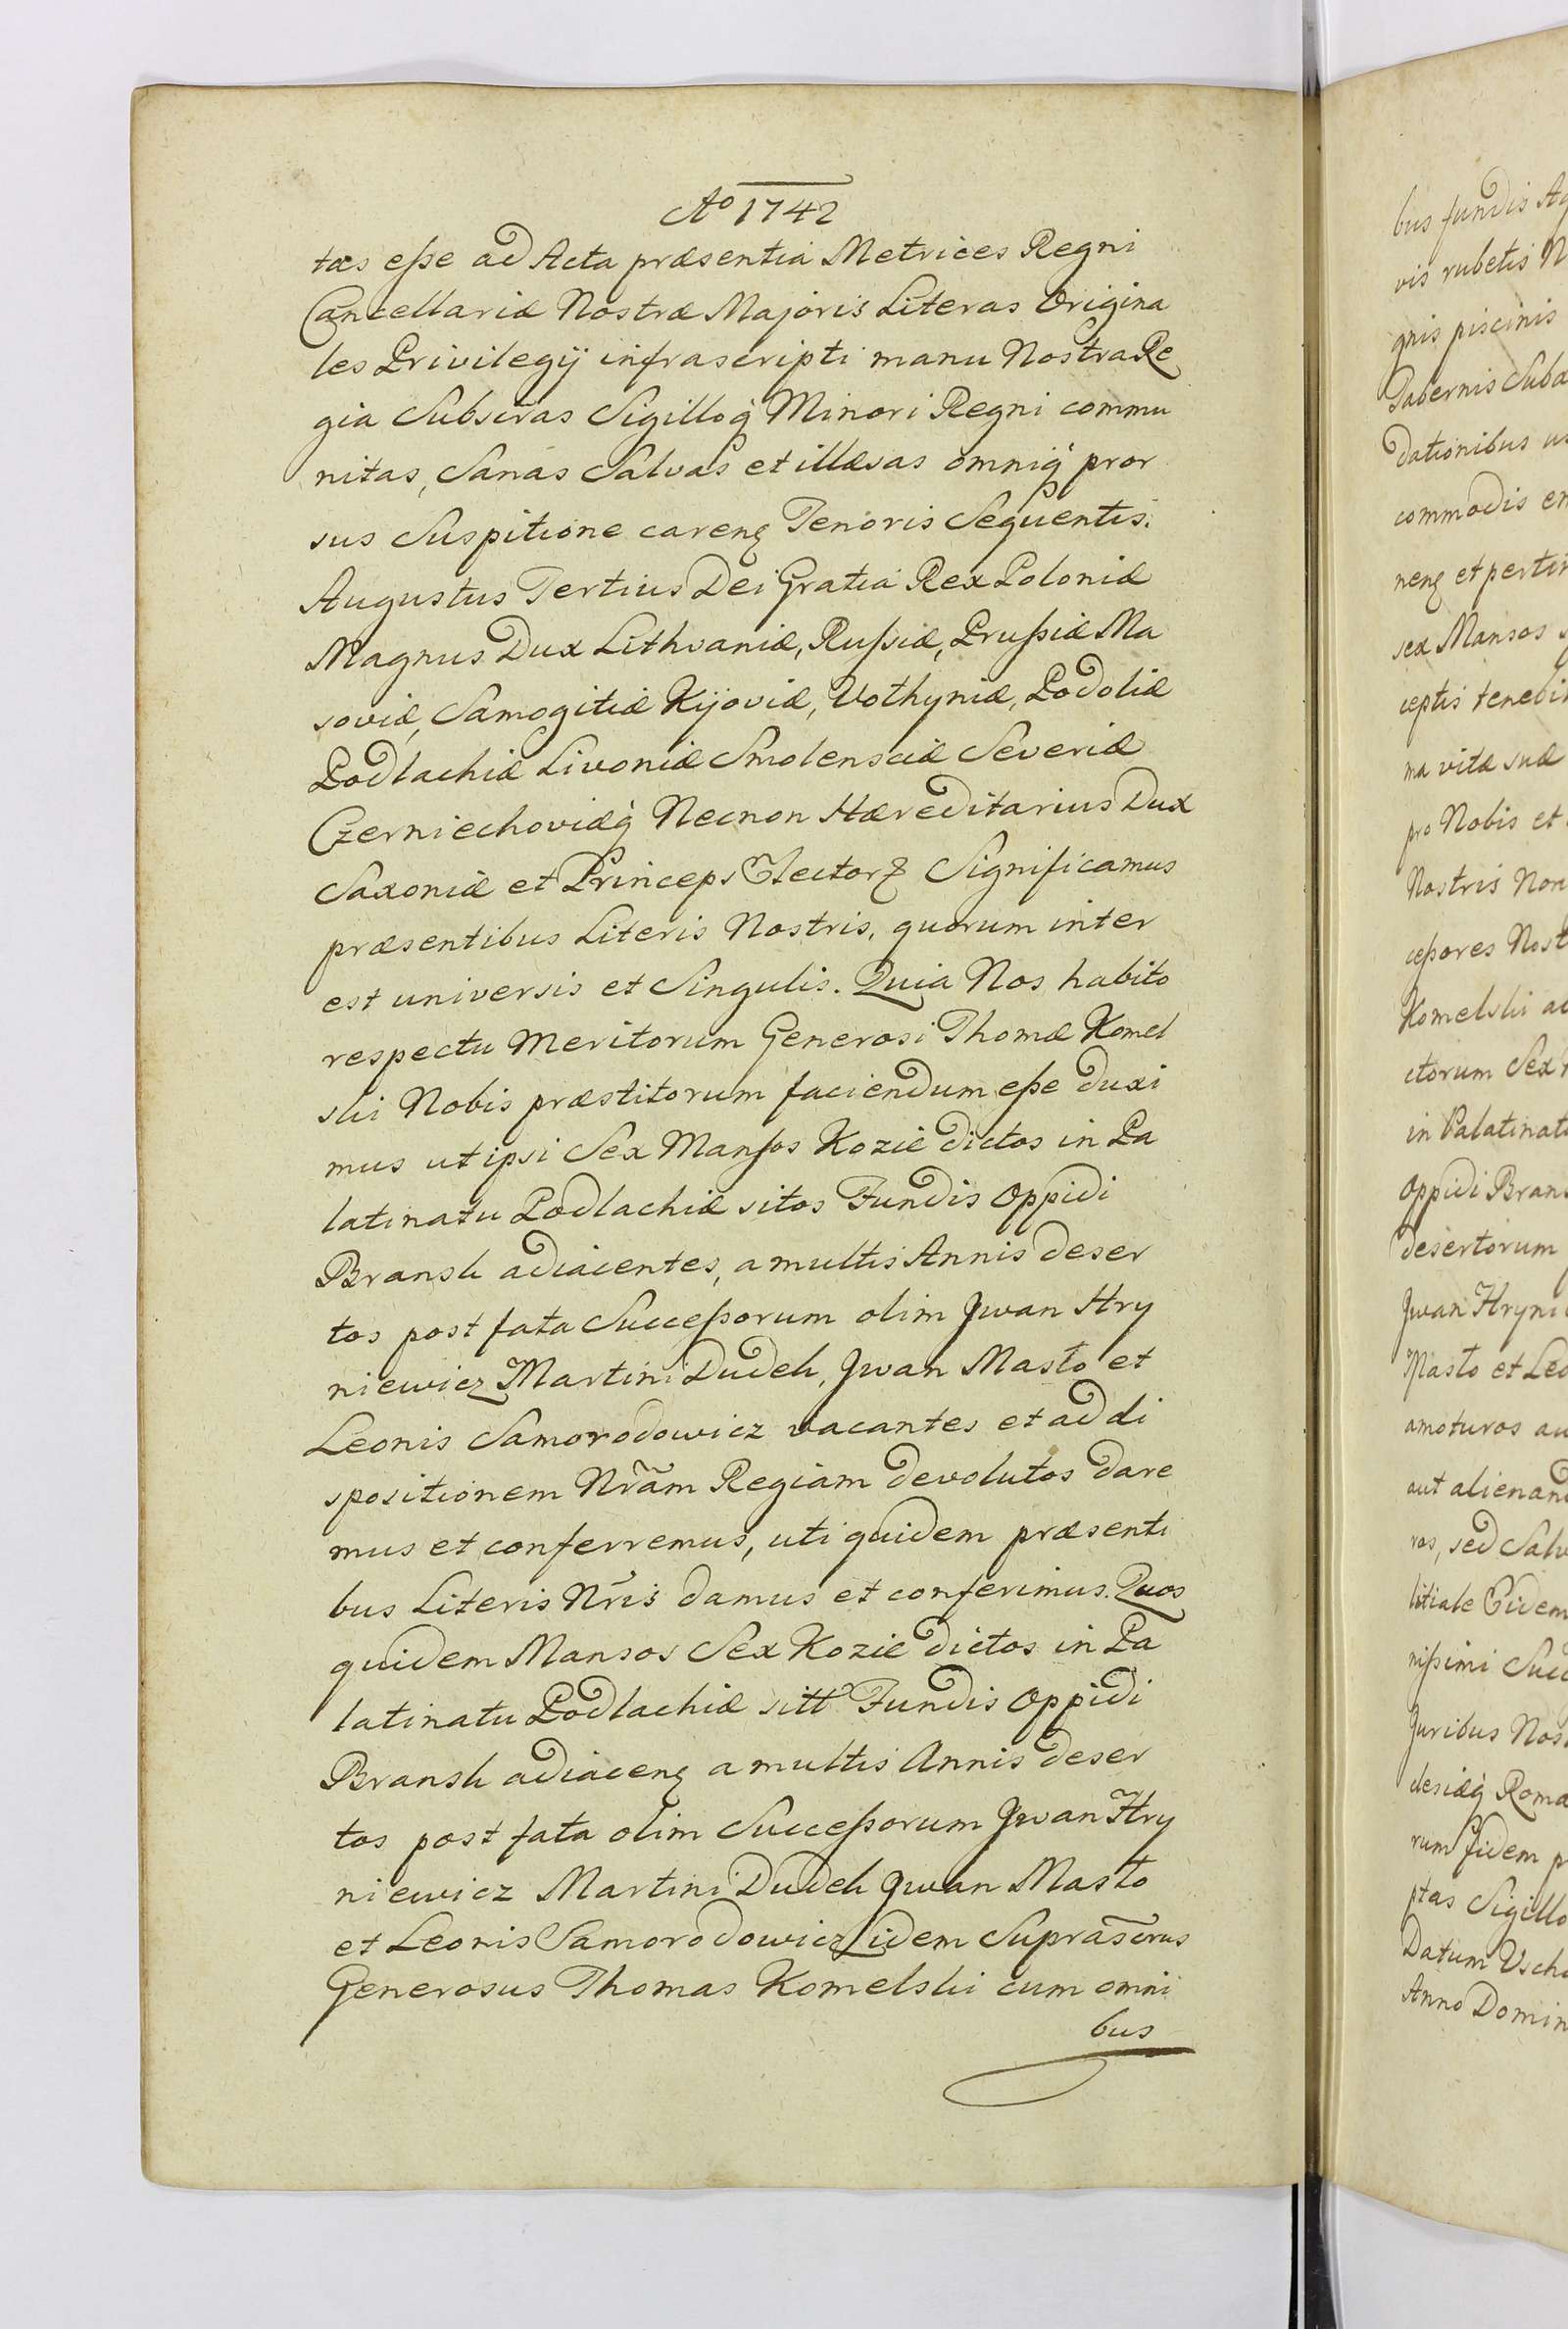 Ao 1742
tas eſse ad Acta præsentia Metrices Regni
Cancellariæ Nostræ Majoris Literas Origina
les Privilegÿ infrascripti manu Nostra Re
gia Subscras Sigilloq Minori Regni commu
nitas, Sanas Salvas et illæsas omniq pror
sus Suspitione careng Tenoris Sequentis.
Augustus Tertius Dei Gratia Rex Poloniæ
Magnus Dux Lithvaniæ, Ruſsiæ, Pruſsiæ Ma
soviæ, Samogitiæ Kijoviæ, Volhyniæ, Podoliæ
Podlachiæ Livoniæ Smolensciæ Severiæ
Czerniechoviæq Necnon Hæreditarius Dux
Saxoniæ et Princeps Elector Significamus
præsentibus Literis Nostris, quorum inter
est universis et Singulis. Quia Nos habito
respectu Meritorum Generosi Thomæ Komel
ski Nobis præstitorum faciendum eſse duxi
mus ut ipsi Sex Manſos Kozie dictos in Pa
latinatu Podlachiæ sitos Fundis Oppidi
Bransk adiacentes, a multis Annis deser
tos post fata Succeſsorum olim Jwan Hry
niewicz Martini Dudek, Jwan Masło et
Leonis Samorodowicz vacantes et ad di
spositionem Nrãm Regiam devolutos dare
mus et conferremus, uti quidem præsenti
bus Literis Nris damus et conferimus. Quos
quidem Mansos Sex Kozie dictos in Pa
latinatu Podlachiæ sitt Fundis Oppidi
Bransk adiaceng a multis Annis deser
tos post fata olim Succeſsorum Jwan Hry
niewicz Martini Dudek Jwan Masło
et Leonis Samorodowicz idem Suprascrus
Generosus Thomas Komelski cum omni
bus
bus fundis
vis rubetis
gnis piscinis
Tabernis
dationibus
commodis
neng et
sex Mansos
ceptis
ma vitæ suæ
pro Nobis et
Nostris Non
ceſsores
Komelski
ctorum Sex
in
Oppidi
desertorum
Jwan
Masło et
amoturos
aut
ros, sed
litiale Eidem
niſsimi
Juribus
clesiæq
rum fidem
ptas
Datum
Anno